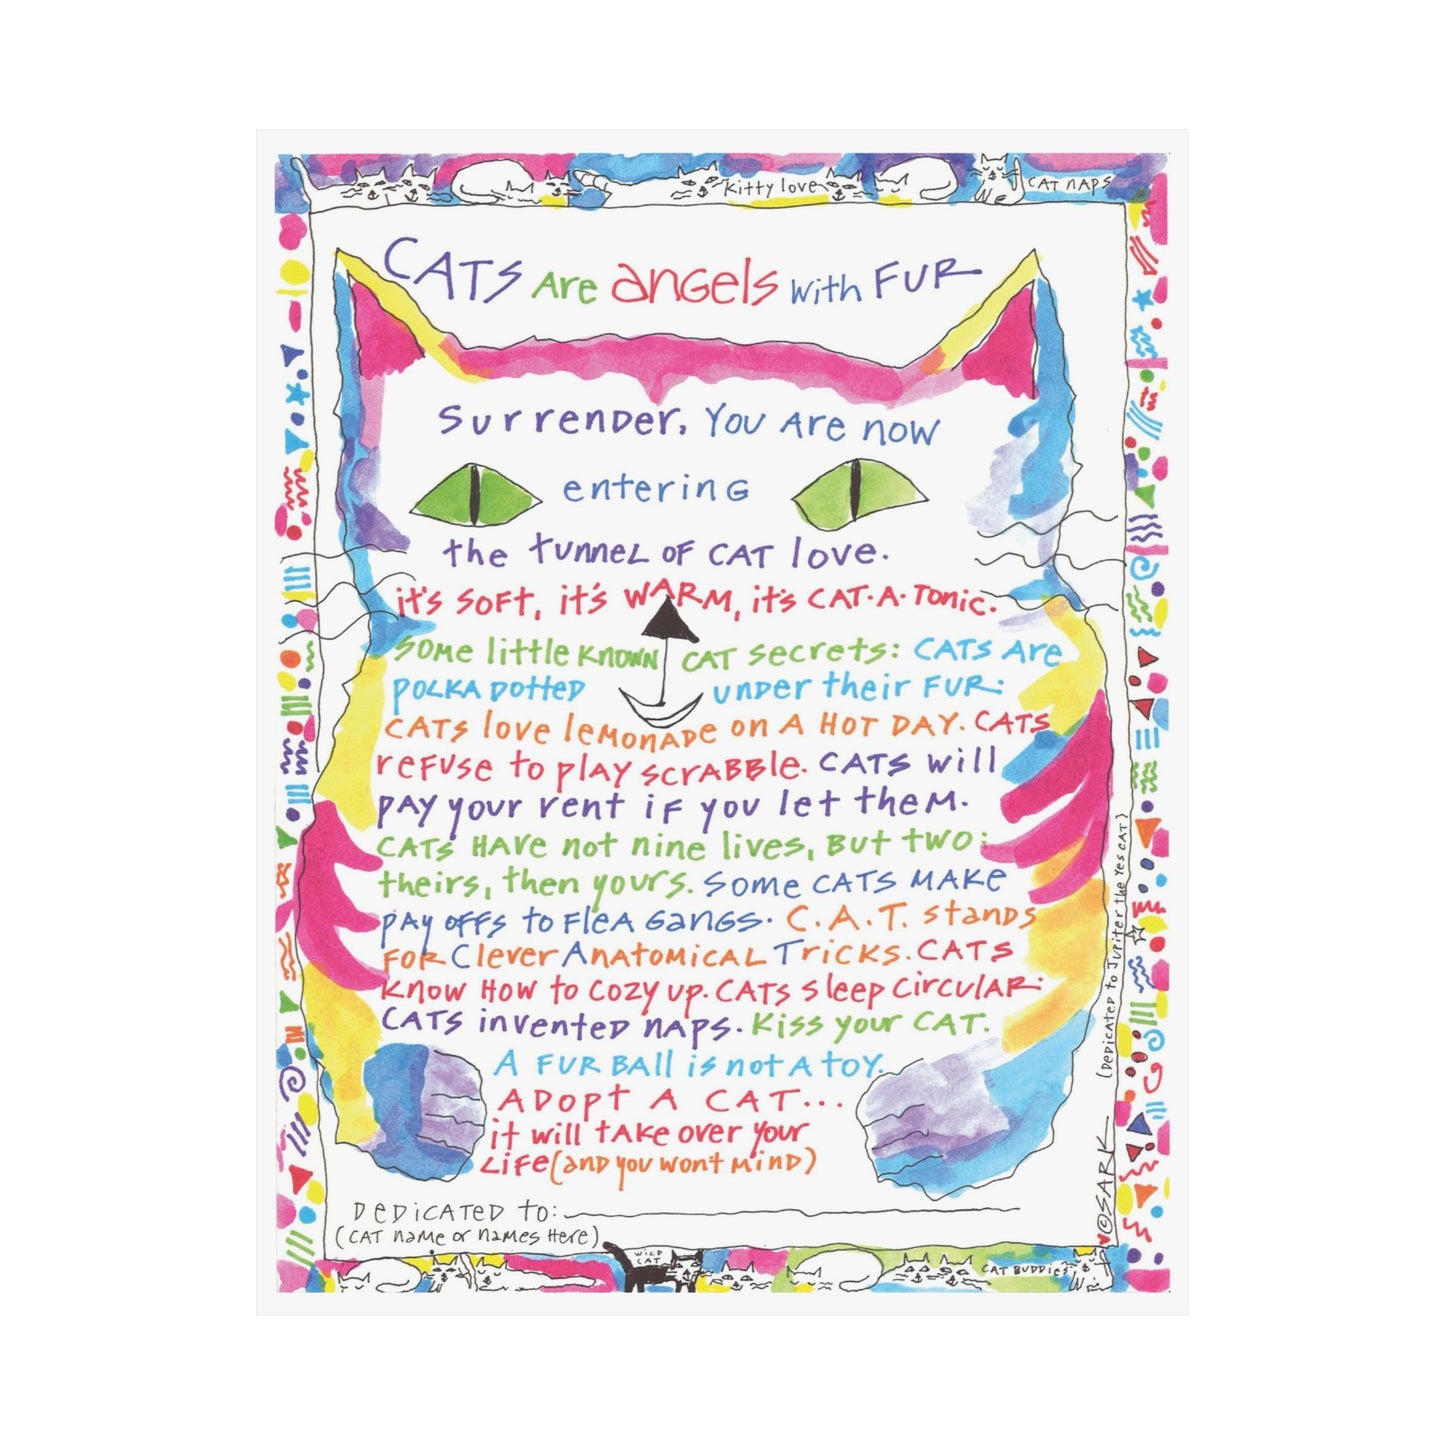 Kitty love
CAT NAPS
CATS Are angels with FUR
Surrender. You Are now
entering
the tunnel of CAT love.
it's SOFT, it's WARM, it's CAT·A·TONIC.
SOME little known CAT secrets: CATS Are
POLKA DOTTED under their FUR.
CATS love lemonade on A HOT DAY. CATS
refuse to play scrabble. CATS will
PAY your rent if you let them.
CATS HAVE not nine lives, But two:
theirs, then yours. Some CATS MAKE
PAY offs to Flea Gangs. C.A.T. stands
FOR Clever Anatomical Tricks. CATS
Know How to cozy up. CATS sleep circular.
CATS invented naps. Kiss your CAT.
A FUR BALL is not A toy.
ADOPT A CAT...
it will take over your
Life (and you won't mind)
DEDICATED TO:
(CAT name or names Here)
(Dedicated to Jupiter the Yes cat)
©SARK
WILD
CAT
CAT BUDDIES